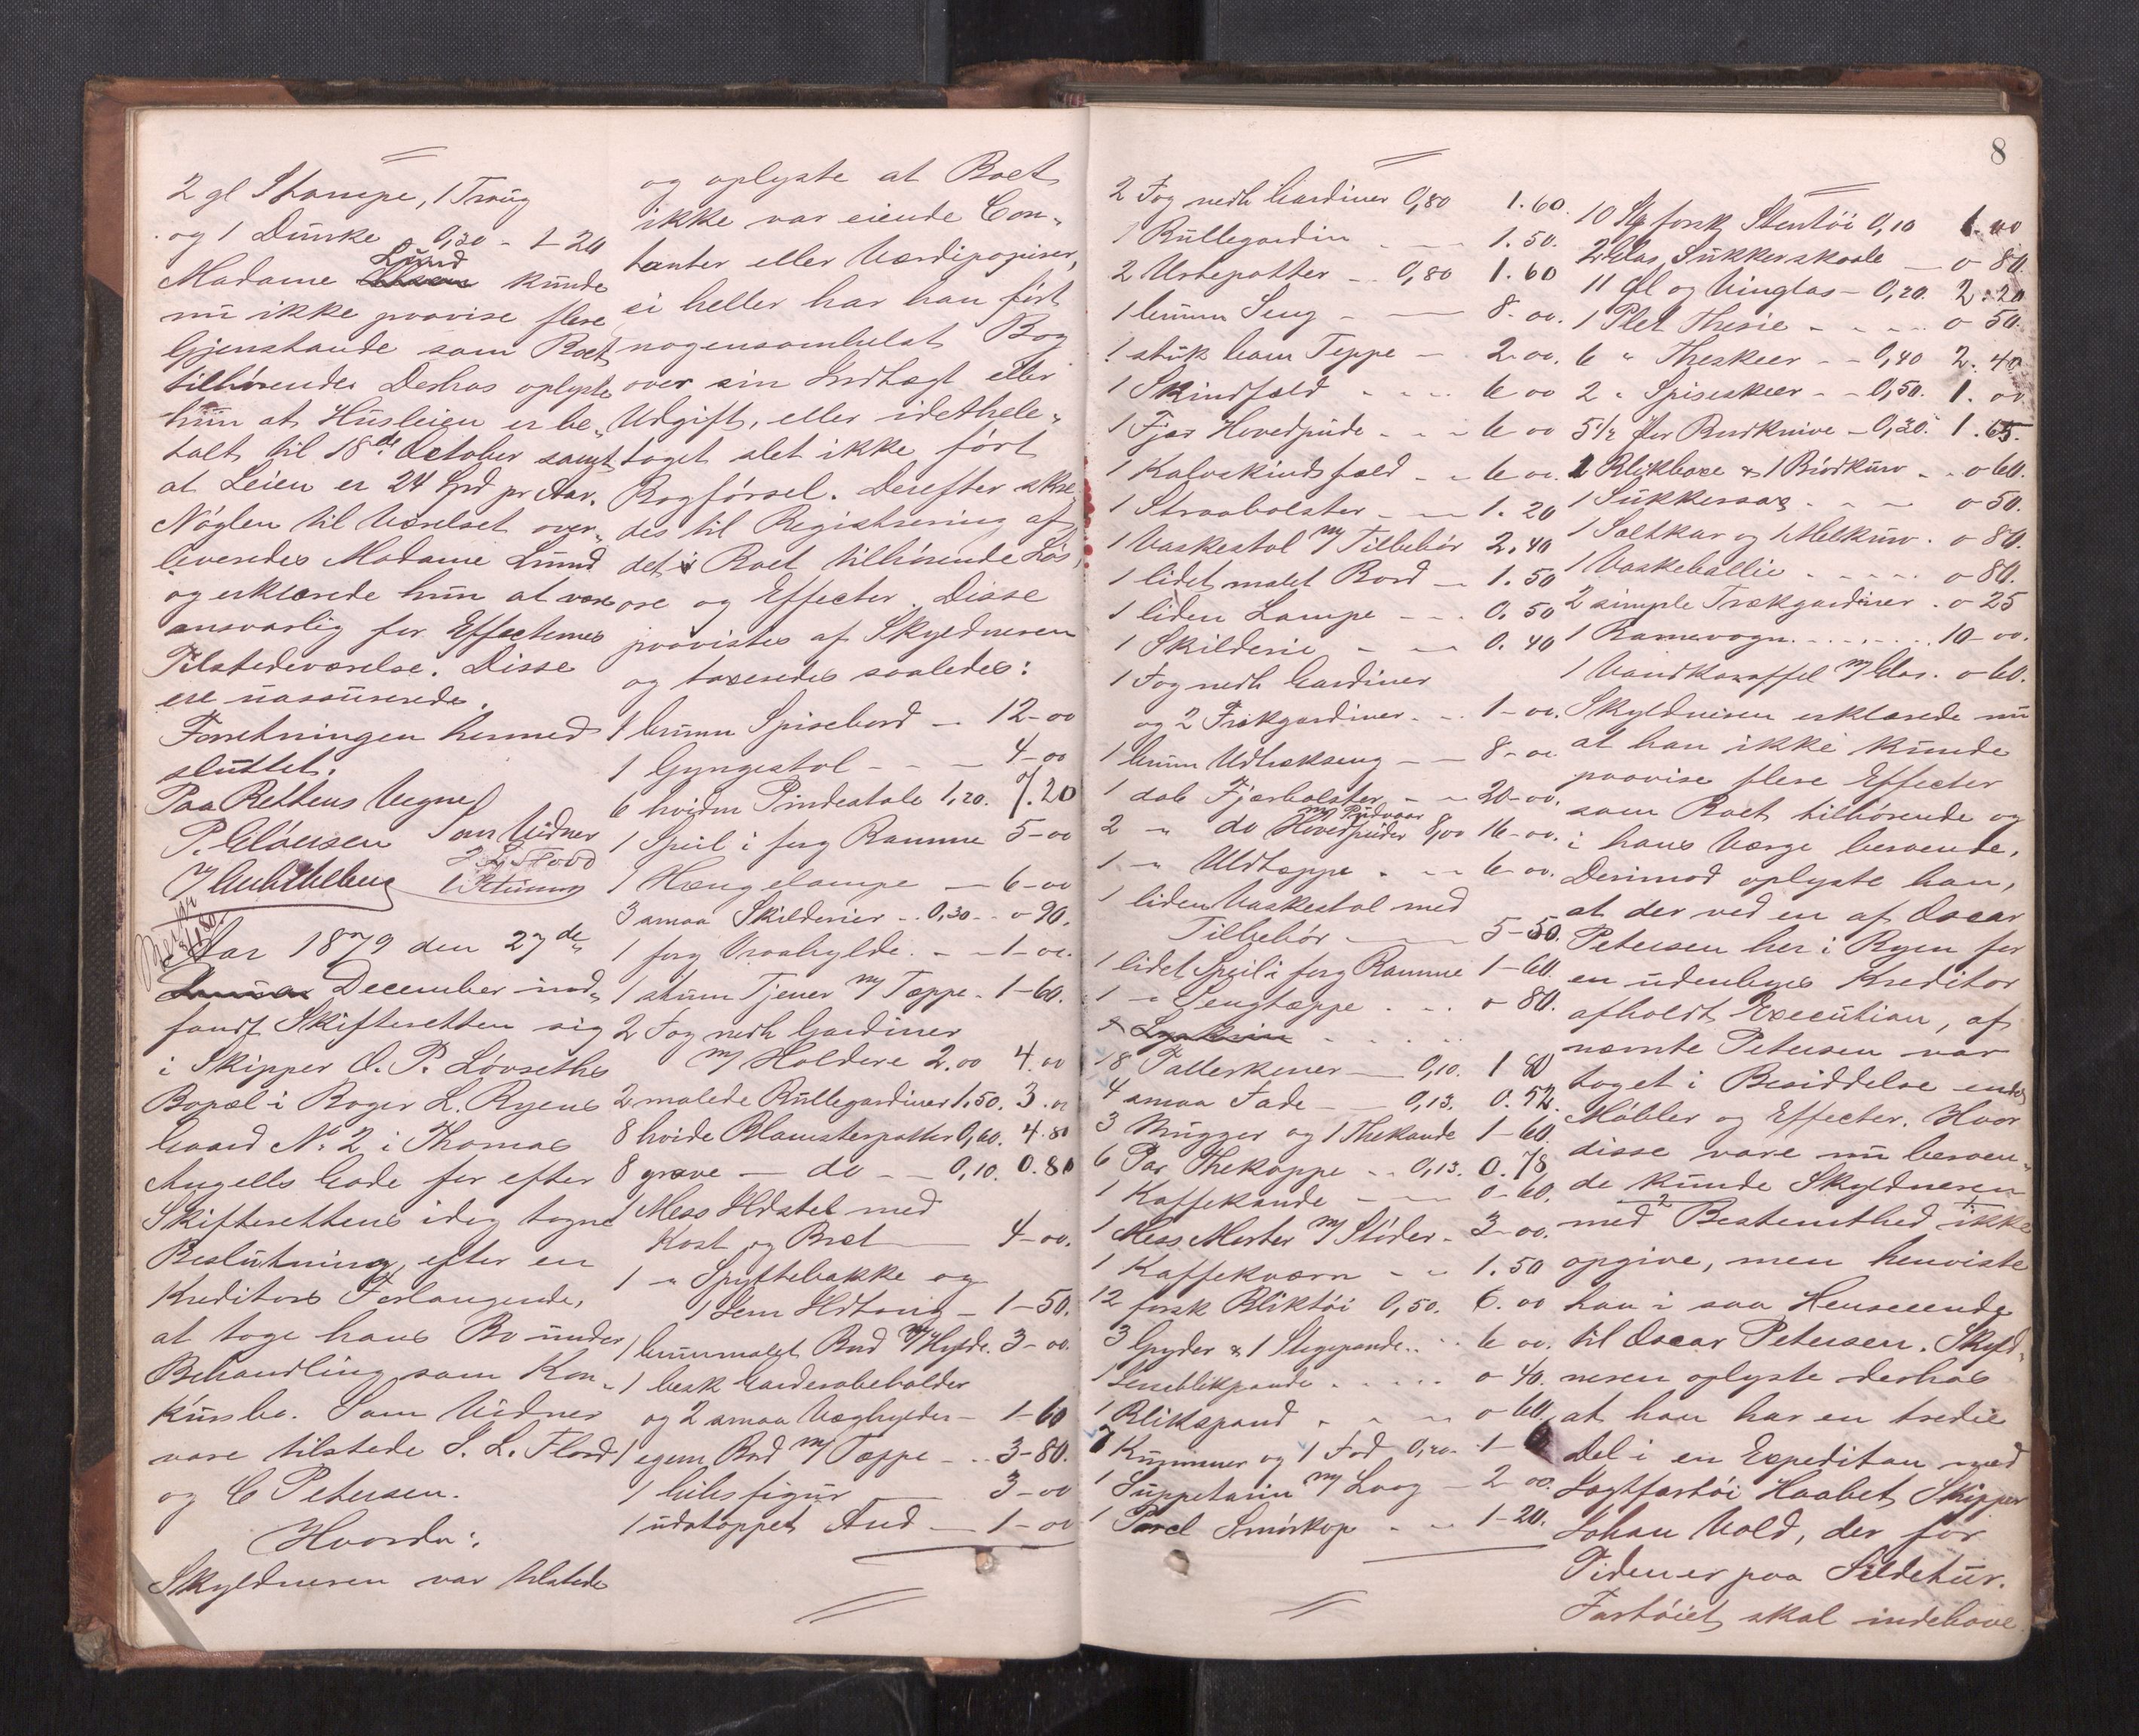 2 gl Stampe, 1 Traug
og 1 Dunke 0,30 - 1-20
Lund
Madame kunde
nu ikke paavise flere
Gjenstande som Boet
tilhørende. Derhos oplyste
hun at Husleien er be-
talt til 18de October samt
at Leien er 24 Spd pr Aar.
Nøglen til Værelset over-
leveredes Madame Lund
og erklærede hun at være
ansvarlig for Effecternes
Tilstedeværelse. Disse
ere uassurerede.
Forretningen hermed
sluttet.
Paa Rettens Vegne
P. Claussen Som Vidner
J. L. Flood
C Petersen
Aar 1879 den 27de
December ind-
fandt Skifteretten sig
i Skipper O. P. Løvseths
Bopæl i Roger L. Ryens
Gaard No 2 i Thomas
Angells Gade for efter
Skifterettens idag tagne
Beslutning, efter en
Kreditors Forlangende,
at tage hans Bo under
Behandling som Kon-
kursbo. Som Vidner
vare tilstede J. L. Flood
og C Petersen.
Hvorda:
Skyldneren var tilstede
og oplyste at Boet
ikke var eiende Con-
tanter eller Værdipapirer,
ei heller har han ført
nogensomhelst Bog
over sin Indtægt eller
Udgift, eller idethele-
taget slet ikke ført
Bogførsel. Derefter skre-
des til Registrering af
det Boet tilhørende Løs-
øre og Effecter. Disse
paavistes af Skyldneren
og taxeredes saaledes:
1 brunm Spisebord - 12-00
1 Gyngestol - - - 4-00
6 hvidm Pindestole 1,20. 7.20
1 Speil i forg Ramme 5-00
1 Hængelampe - 6-00
3 smaa Skilderier - 0,30 - 0-90.
1 forg Vraahylde. - - 1-00.
1 stum Tjener m/ Tæppe - 1-60.
2 Fag nedh Gardiner
m/ Holdere 2.00 4.00
2 malede Rullegardiner 1,50. 3.00
8 hvide Blomsterpotter 0,60. 4.80
8 grove - do - - 0,10. 0.80
1 Mess Ildstel med
Kost og Bret - 4-00.
1 " Spyttebakke og
1 Jern Ildtang - 1-50.
1 brunmalet Bord m/ Hylde. 3-00.
1 besk Garderobeholder
og 2 smaa Væghylder - 1-60
1 egem Bord m/ Tæppe - .. 3-80.
1 Gibsfigur - 3-00
1 udstoppet And - 1-00
8
2 Fag nedh Gardiner 0,80 1.60.
1 Rullegardin - - 1.50.
2 Urtepotter - 0,80 1.60
1 brunm Seng - 8-00.
1 stük ham Teppe - 2-00.
1 Skindfæld - - - 6 00
1 Fjær Hovedpude - - - 6 00
1 Kalveskindsfæld - - 6 00.
1 Straabolster - - 1.20
1 Vaskestol m/ Tilbehör 2.40
1 lidet malet Bord - - 1.50
1 liden Lampe - - 0.50
1 Skilderie - - 0.40
1 Fag nedh Gardiner
og 2 Trækgardiner - - 1-00.
1 brunm Udtrækseng - - 8-00
1 dob Fjærbolster - - 20-00.
m/ Pudevaar
2 " do Hovedpuder 8,00 16-00.
1 " Uldtæppe - - 6-00.
1 liden Vaskestol med
Tilbehör - 5-50.
1 lidet Speil i forg Ramme 1-60.
1 " Sengtæppe - - 0-80.
18 Tallerkener - 0,10. 1 80
4 smaa Fade - 0,13. 0.52.
3 Mugger og 1 Thekande 1-60.
6 Par Thekoppe - - 0,13. 0.78
1 Kaffekande - - 0-60.
1 Mess Morter m/ Støder - 3-00.
1 Kaffekværn - - 1.50
12 forsk Bliktöi 0,50. 6.00
3 Gryder & 1 Stegepande - - 6 00.
1 Jernblikpande - - - 0 40.
1 Blikspand - - - 0 60.
7 Kummer og 1 Fad 0,20 - 1-
1 Suppeterin m/ Laag - 2 00.
1 Porcl Smörkop - - 1-20.
10 Stg forsk Stentöi 0,10 1.00
2 Glas Sukkerskaale - 0 80.
11 Øl og Vinglas - 0,20. 2.20
1 Plet Thesie - - - 0-50.
6 " Theskeer - - 0,40 2.40
2 " Spiseskeer - - 0,50. 1.00
5 1/2 Par Bordknive - 0,30. 1.65.
1 Blikboxe & 1 Brödkurv - - 0-60.
1 Sukkersax - - - 0 50.
1 Saltkar og 1 Melkurv - 0-80.
1 Vaskeballie - - - 0-80.
2 simple Trækgardiner - 0-25
1 Barnevogn - - - - 10-00.
1 Vandkaraffel m/ Glas. 0-60.
Skyldneren erklærede nu
at han ikke kunde
paavise flere Effecter
som Boet tilhørende og
i hans Værge beroende.
Derimod oplyste han,
at der ved en af Oscar
Petersen her i Byen for
en udenbyes Kreditor
afholdt Execution, af
nævnte Petersen var
taget i Besiddelse endel
Møbler og Effecter. Hvor
disse vare nu beroen-
de kunde Skyldneren
med Bestemthed ikke
opgive, men henviste
han i saa Henseende
til Oscar Petersen. Skyld-
neren oplyste derhos
at han har en tredie
Del i en Expedition med
Jagtfartøi Haabet, Skipper
Johan Vold, der for
Tiden er paa Sildetur.
Fartøiet skal indehave